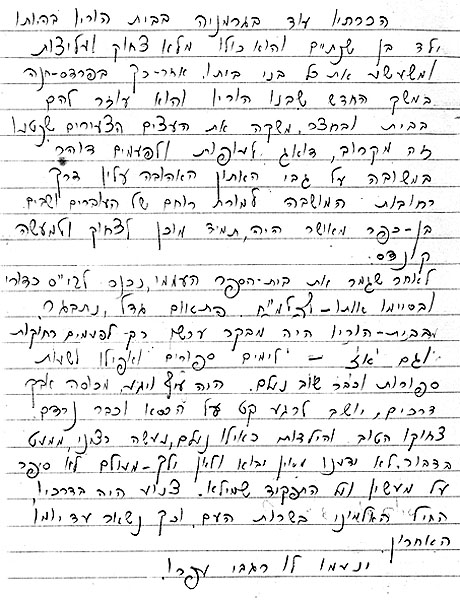 הכרתיו עוד בגרמניה בבית הוריו בהיותו
ילד בן שנתיים והוא כולו מלא צחוק ועליצות
ומשעשע את כל בני ביתו. אחר-כך בפרדס-חנה
במשק החדש שבנו הוריו והוא עוזר להם
בבית ובחצר, משקה את העצים הצעירים שנטעו
זה מקרוב, דואג לעופות ולפעמים דוהר
במשובה על גבי האתון האהובה עליו דרך
רחובות המושבה למורת רוחם של העוברים ושבים
בן-כפר מאושר היה, תמיד מוכן לצחוק ולמעשה
קונדס.
לאחר שגמר את בית-הספר העממי, נכנס לבי"ס כדורי
ובסיימו אותו - לפלמ"ח. פתאום גדל, נתבגר
בבית-הוריו היה מבקר עכשיו רק לפעמים רחוקות
וגם אז - לימים ספורים ואפילו לשעות
ספורות וכבר שוב נעלם. היה עיף ויגע, מכוסה אבק
דרכים, יושב לרגע קט על הכסא וכבר נרדם.
צחוקו הטוב והילדותי כאילו נעלם, נעשה רציני, ממעט
בדבור. לא ידענו מאין יבוא ולאן ילך - מעולם לא ספר
על מעשיו ועל התפקיד שמילא. צנוע היה בדרכיו,
החיל האלמוני בשרות העם, וכך נשאר עד יומו
האחרון.
ינעמו לו רגבי עפרו.